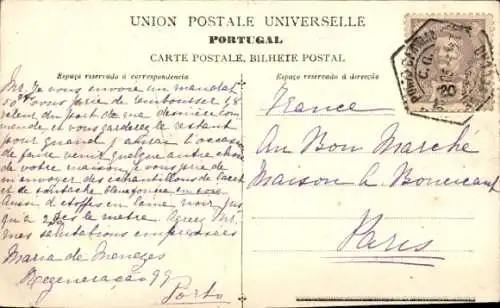 UNION POSTALE UNIVERSELLE
PORTUGAL
CARTE POSTALE, BILHETE POSTAL
Espaço reservado á correspondencia
Espaço reservado á direcção
Mr. Je vous envoie un mandat
vous prie de rembourser
valeur du port de ma dernière com
mande et vous garderez le restant
pour quand j'aurai l'occasion
de faire venir quelque autre chose
de votre maison. Je vous prie de
m'envoyer des échantillons de lacet
et de soutache en soie
Aussi d'étoffes en laine noir, jus
qu'à le mètre. Agréez Mr.
mes salutations empressées
Maria de Menezes
Regeneração 99
Porto
France
Au Bon Marché
Maison A. Boucicaut
Paris
20